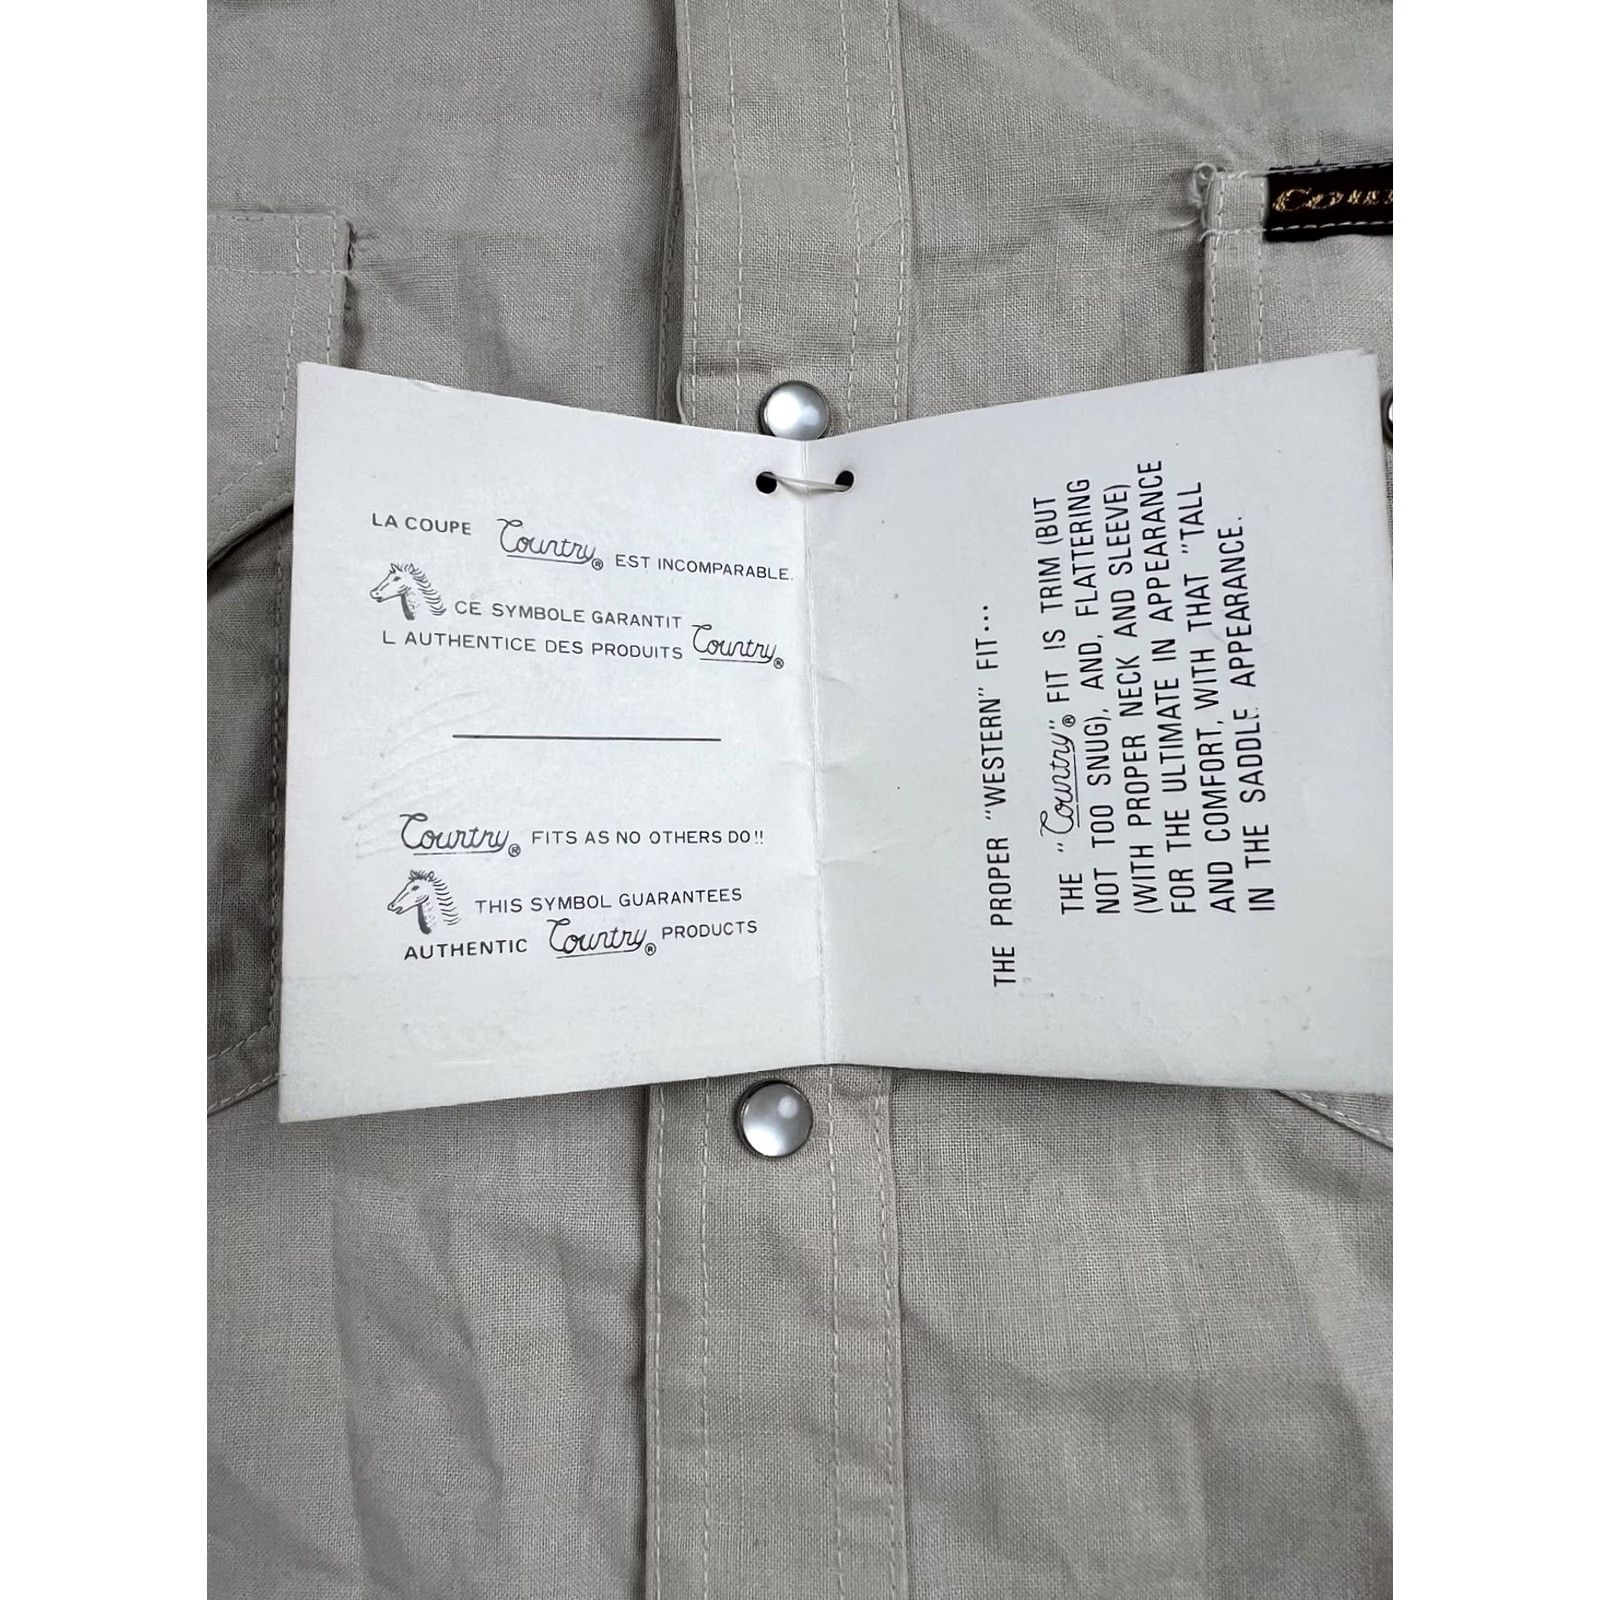 LA COUPE Country® EST INCOMPARABLE.
CE SYMBOLE GARANTIT
L AUTHENTICE DES PRODUITS Country®
Country® FITS AS NO OTHERS DO!!
THIS SYMBOL GUARANTEES
AUTHENTIC Country® PRODUCTS
THE PROPER "WESTERN" FIT...
THE "Country"® FIT IS TRIM (BUT
NOT TOO SNUG), AND, FLATTERING
(WITH PROPER NECK AND SLEEVE)
FOR THE ULTIMATE IN APPEARANCE
AND COMFORT, WITH THAT "TALL
IN THE SADDLE APPEARANCE.